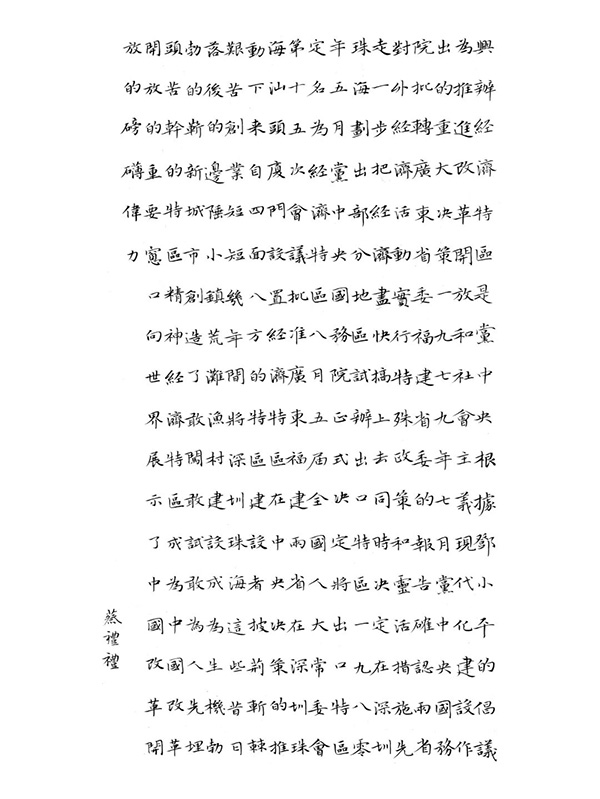 興辦經濟特區是黨中央根據鄧小平的倡議
為推進改革開放和社會主義現代化建設作
出的重大决策一九七九年七月黨中央國務
院批轉廣東省委福建省委的報告確認兩省
對外經濟活動實行特殊政策和靈活措施先
走一步把經濟盡快搞上去同時决定在深圳
珠海劃出部分地區試辦出口特區一九八零
年五月黨中央國務院正式决定將出口特區
定名為經濟特區八月五届全國人大常委會
第十五次會議批准廣東福建兩省在深圳珠
海汕頭廈門設置經濟特區在中央决策的推
動下来自四面八方的特區建設者披荊斬棘
艱苦創業短短幾年間將深圳珠海這些昔日
落後的邊陲小鎮荒灘漁村建設成為生機勃
勃的嶄新城市創造了敢闖敢試敢為人先埋
頭苦幹的特區精神經濟特區成為中國改革
開放的重要窓口向世界展示了中國改革開
放的磅礴偉力
蔡禮禮